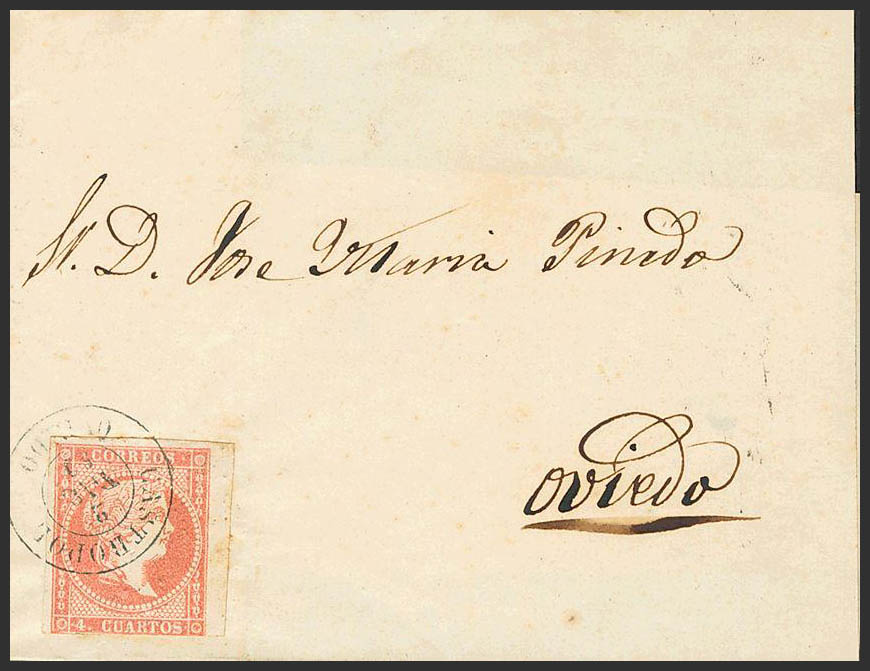 Sr. D. Jose Maria Pinedo
Oviedo
CORREOS
4. CUARTOS
CASTROPOL
OVIEDO